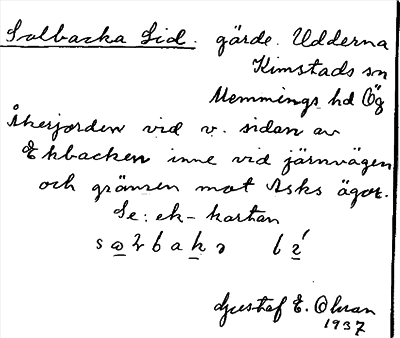 Salbacka Lid. gärde. Udderna
Kimstads sn
Memmings hd Ög
Åkerjorden vid v. sidan av
Ekbacken inne vid järnvägen
och gränsen mot Asks ägor.
Se: ek-kartan
Gustaf E. Ohran
1937